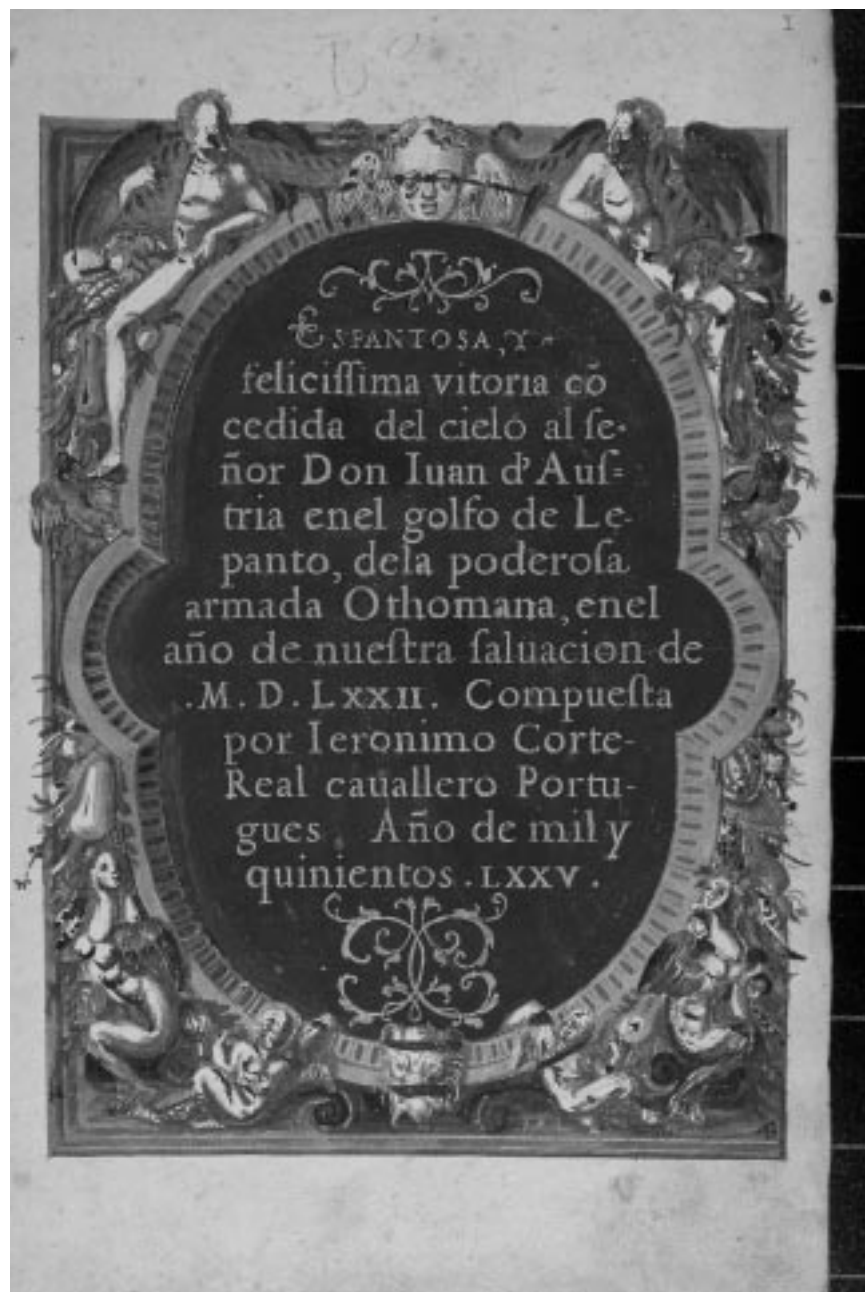 1
ESPANTOSA, Y
feliciſſima vitoria cõ
cedida del cielo al ſe-
ñor Don Iuan d'Auſ=
tria enel golfo de Le-
panto, dela poderoſa
armada Othomana, enel
año de nueſtra ſaluacion de
.M.D.LXXII. Compueſta
por Ieronimo Corte-
Real cauallero Portu-
gues Año de mil y
quinientos .LXXV.